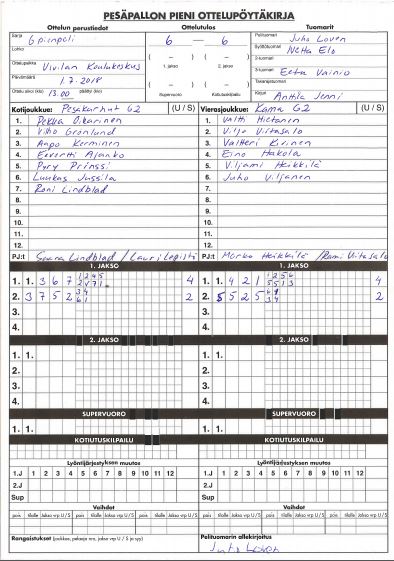 PESÄPALLON PIENI OTTELUPÖYTÄKIRJA
Ottelun perustiedot Ottelutulos Tuomarit
Sarja Gpienpeli
Lohko
Ottelupaikka Vivilän Koulukeskus
Päivämäärä 1.7.2018
Otteluaika (klo) 13.00 päättyi (klo)
6 – 6
( – ) ( – )
1. jakso 2. jakso
( – ) ( – )
Supervuoro Kotiutuskilpailu
Pelituomari Juho Loven
Syöttötuomari Netta Elo
2-tuomari
3-tuomari Eetu Vainio
Takarajatuomari
Kirjuri Anttila Jenni
Kotijoukkue: Pesäkarhut G2 (U / S)
1. Pekka Oikarinen
2. Vilho Grönlund
3. Aapo Kerminen
4. Eevertti Ajanko
5. Pyry Prinssi
6. Luukas Jussila
7. Roni Lindblad
8.
9.
10.
11.
12.
PJ:t Saana Lindblad / Lauri Lepistö
Vierasjoukkue: Kama G2 (U / S)
1. Valtti Hietanen
2. Viljo Viitasalo
3. Valtteri Kivinen
4. Eino Hakola
5. Viljami Heikkilä
6. Juho Viljanen
7.
8.
9.
10.
11.
12.
PJ:t Marko Heikkilä / Rami Viitasalo
1. JAKSO 1. JAKSO
1. 1. 3 6 7 4 1. 1. 4 2 1 4
2. 3 7 5 2 2 2. 5 5 2 5 2
3. 3.
4. 4.
2. JAKSO 2. JAKSO
1. 1. 1. 1.
2. 2.
3. 3.
4. 4.
SUPERVUORO SUPERVUORO
1. 1. 1. 1.
KOTIUTUSKILPAILU KOTIUTUSKILPAILU
Lyöntijärjestyksen muutos Lyöntijärjestyksen muutos
1.J 1 2 3 4 5 6 7 8 9 10 11 12 1.J 1 2 3 4 5 6 7 8 9 10 11 12
2.J 2.J
Sup Sup
Vaihdot Vaihdot
pois tilalle Jakso vrp U / S pois tilalle Jakso vrp U / S pois tilalle Jakso vrp U / S pois tilalle Jakso vrp U / S
Rangaistukset (joukkue, pelaaja nro, jakso vrp U / S ja syy)
Pelituomarin allekirjoitus
Juho Loven